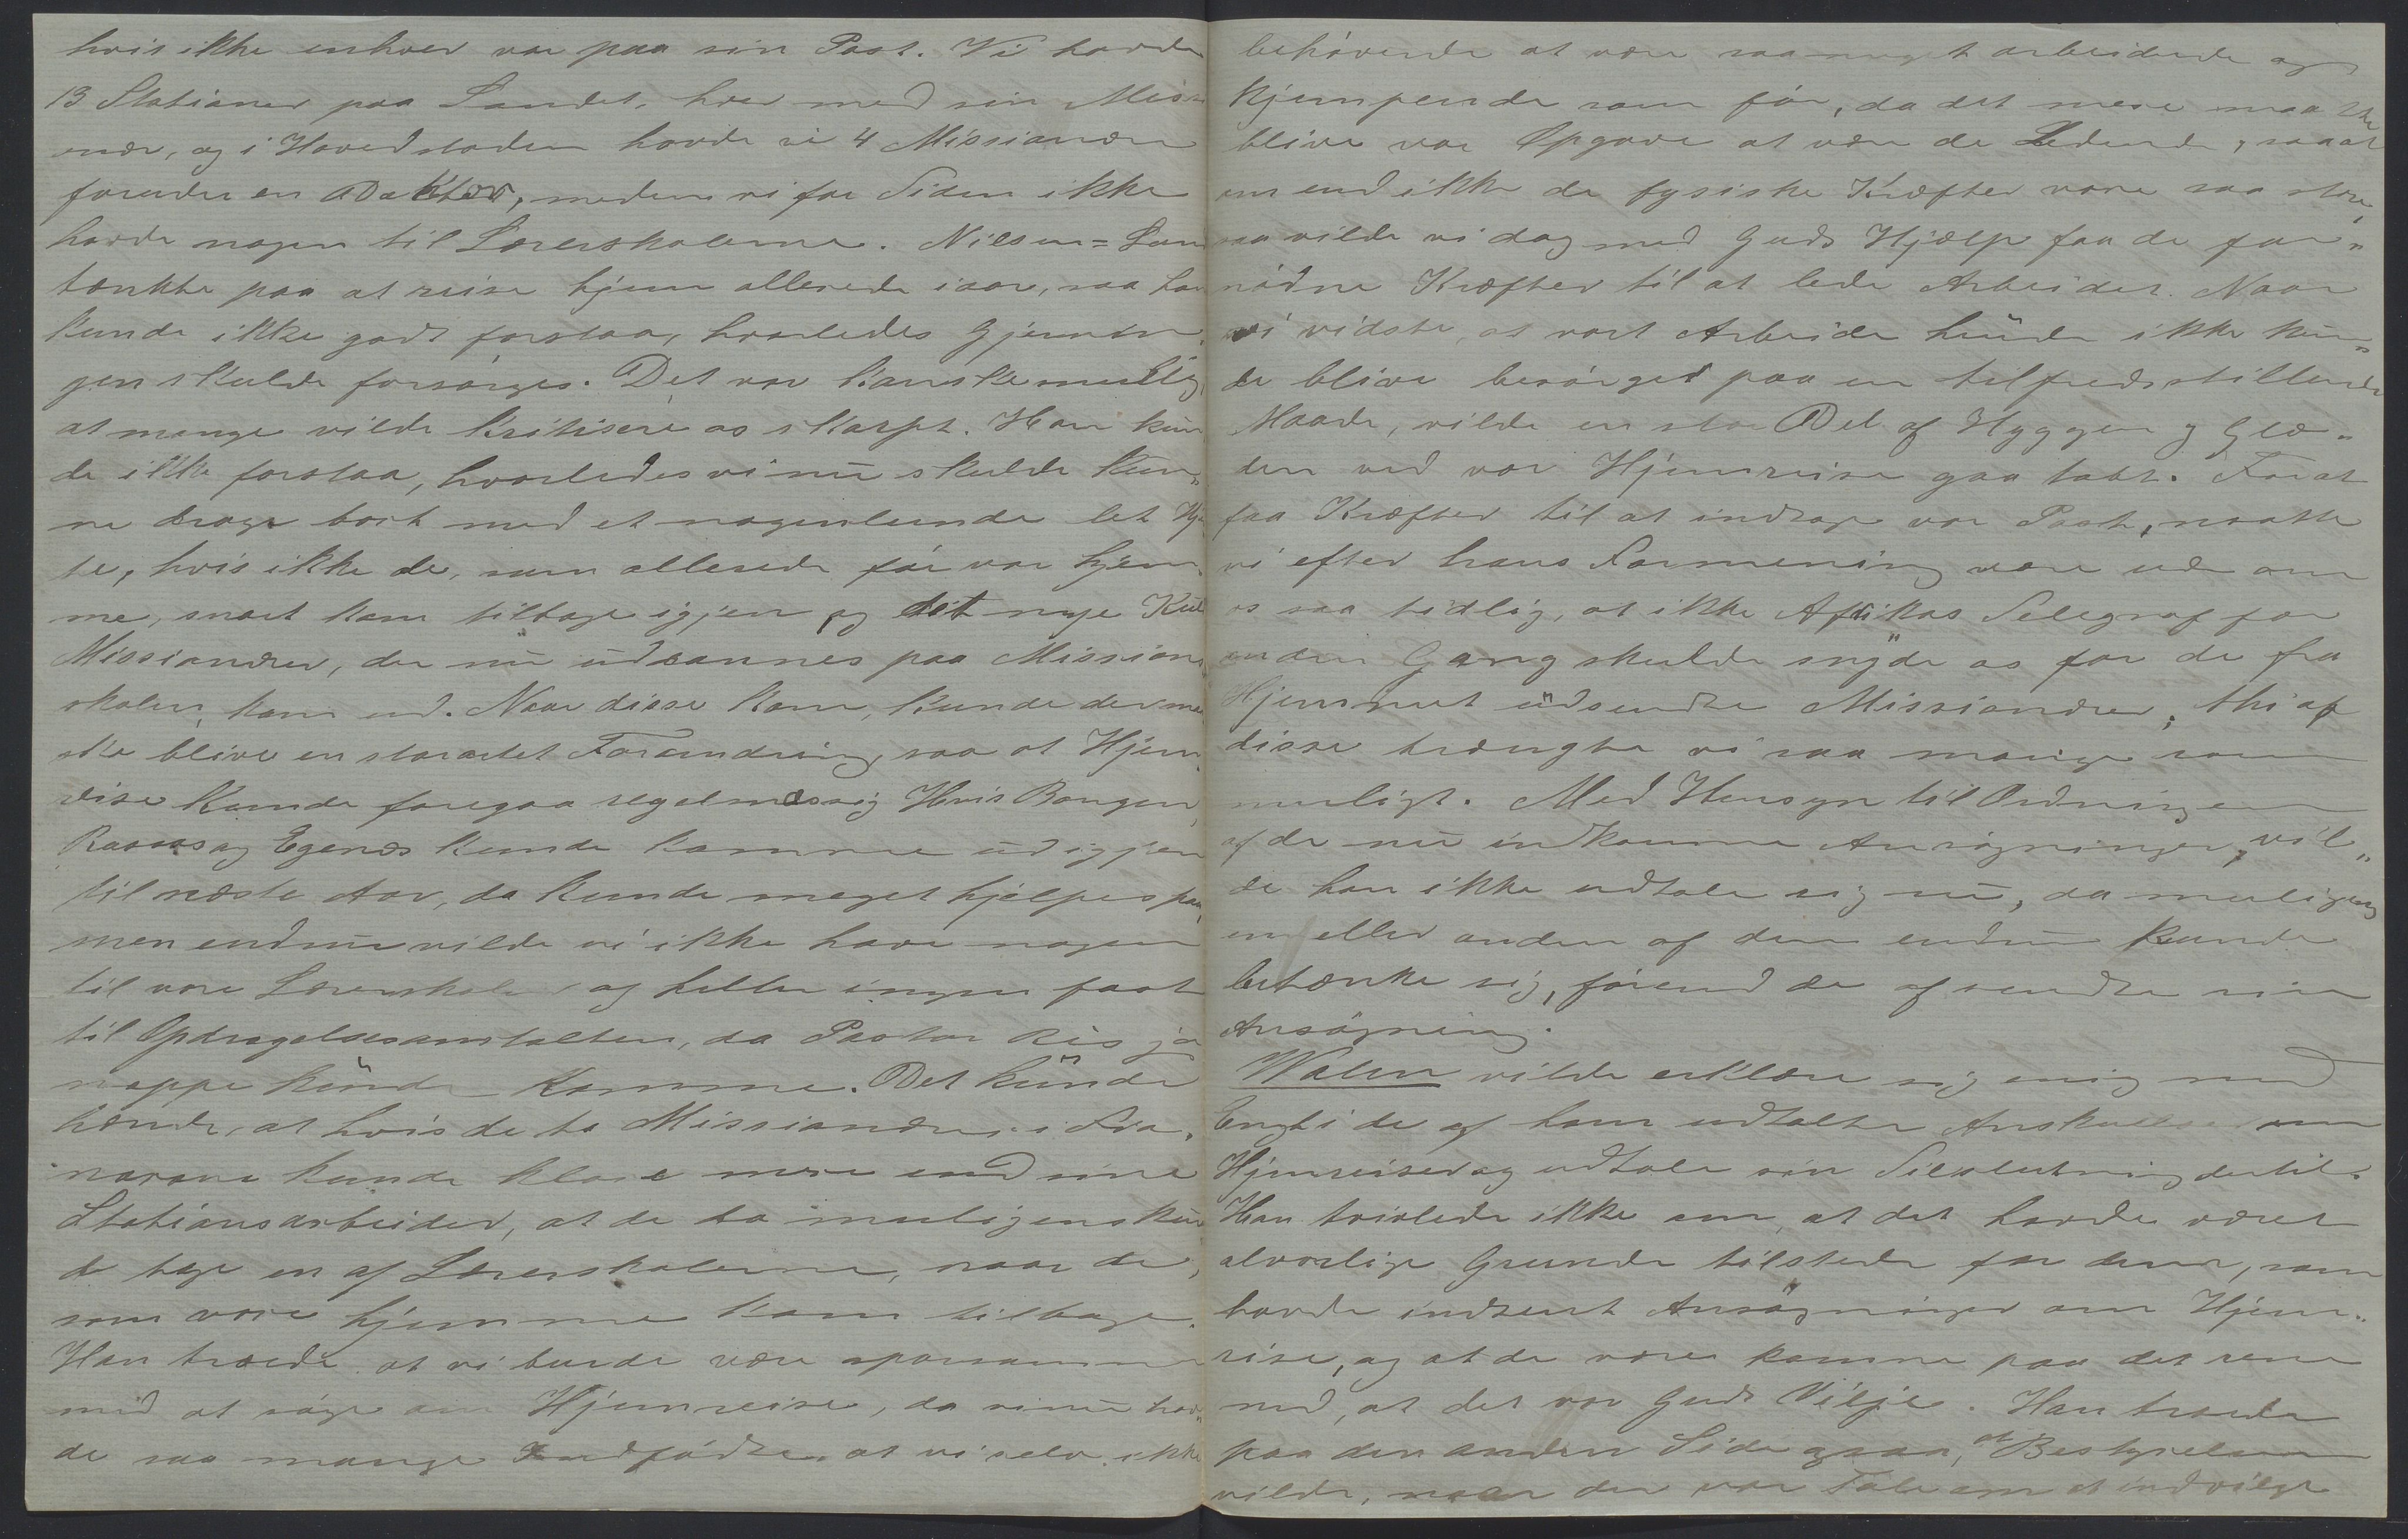 hvis ikke enhver var paa sin Post. Vi havde
13 Stationer paa Landet, hver med sin Missi
onær, og i Hovedstaden havde vi 4 Missionærer
foruden en Doktor, medens vi for Tiden ikke
havde nogen til Lærerskolerne. Nilsen=Lun
tænkte paa at reise hjem allerede iaar, saa han
kunde ikke godt forstaa, hvorledes Gjernin
gen skulde forsørges. Det var kanske mulig,
at mange vilde kritisere os skarpt. Han kun
de ikke forstaa, hvorledes vi nu skulde kun„
ne drage bort med et nogenlunde let Hjer
te, hvis ikke de, som allerede før var hjem
me, snart kom tilbage igjen og det nye Kuld
Missionærer, der nu uddannes paa Missions
skolen, kom ud. Naar disse kom, kunde der maa
ske blive en storartet Forandring, saa at Hjem
reise kunde foregaa regelmæssig. Hvis Borgen,
Raaaas og Egenes kunde komme ud igjen
til næste Aar, da kunde meget hjelpes paa,
men endnu vilde vi ikke have nogen
til vore Lærerskoler og heller ingen fast
til Opdragelsesanstalten, da Pastor Ris jo
neppe kunde komme. Det kunde
hænde, at hvis de to Missionærer i Fia„
narana kunde klare mere end sine
Stationsarbeider, at de to muligens kun
de tage en af Lærerskolerne, naar de,
som vare hjemme kom tilbage.
Han troede at vi burde være sparsomme
med at søge om Hjemreise, da vi nu hav„
de saa mange Indfødte, at vi selv ikke
behøvede at være saa meget arbeidende og
kjempende som før, da det mere maatte
blive vor Opgave at være de Ledende, saa at
om end ikke de fysiske Kræfter vare saa store,
saa vilde vi dog med Guds Hjælp faa de for„
nødne Kræfter til at lede Arbeidet. Naar
vi vidste, at vort Arbeide herude ikke kun„
de blive besørget paa en tilfredsstillende
Maade, vilde en stor Del af Hyggen og Glæ„
den ved vor Hjemreise gaa tabt. For at
faa Kræfter til at indtage vor Post, maatte
vi efter hans Formening være ude om
os saa tidlig, at ikke Afrikas Telegraf for
anden Gang skulde snyde os for de fra
Hjemmet udsendte Missionærer, thi af
disse trængte vi saa mange som
muligt. Med Hensyn til Ordningen
af de nu indkomne Ansøgninger, vil„
de han ikke udtale sig nu, da muligens
en eller anden af dem endnu kunde
betænke sig, førend de afsendte sin
Ansøgning.
Walen vilde erklære sig enig med
Engh i de af ham udtalte Anskuelser om
Hjemreiser og udtale sin Tilslutning dertil.
Han tvivlede ikke om, at det havde været
alvorlige Grunde tilstede for dem, som
havde indsendt Ansøgninger om Hjem„
reise, og at de vare komne paa det rene
med, at det var Guds Vilje. Han troede
paa den anden Side ogsaa, at Bestyrelsen
vilde, naar der var Tale om at indvilge